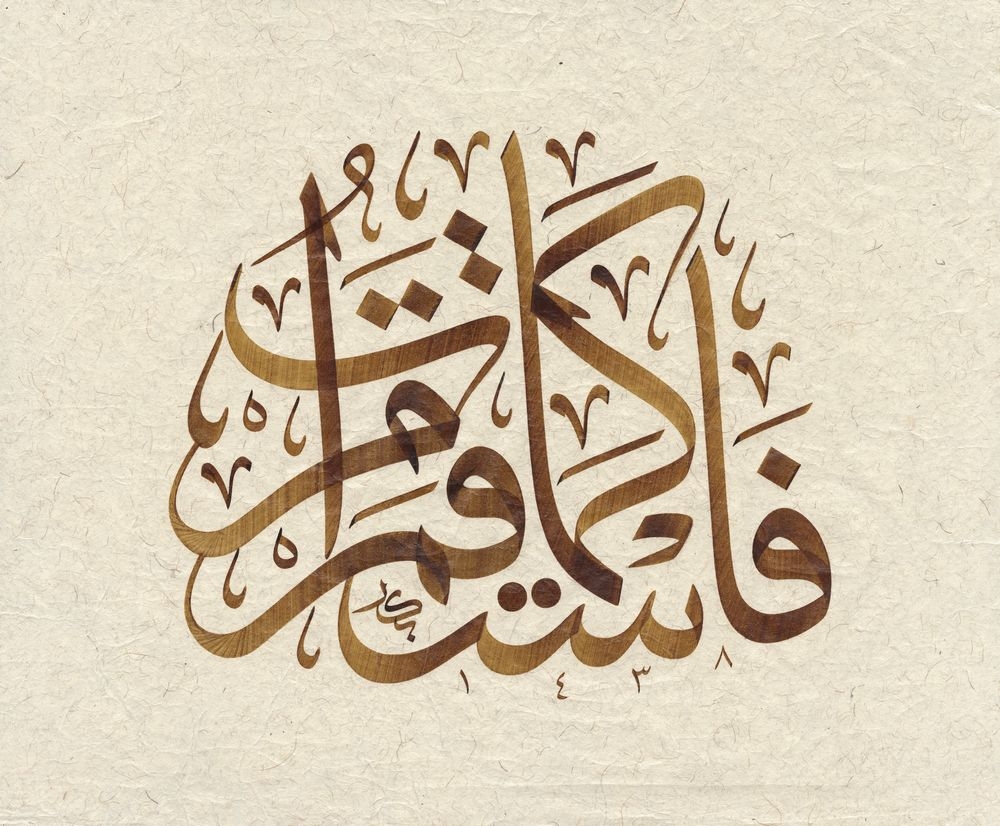 فَاسْتَقِمْ كَمَا أُمِرْتَ
١٤٣٨